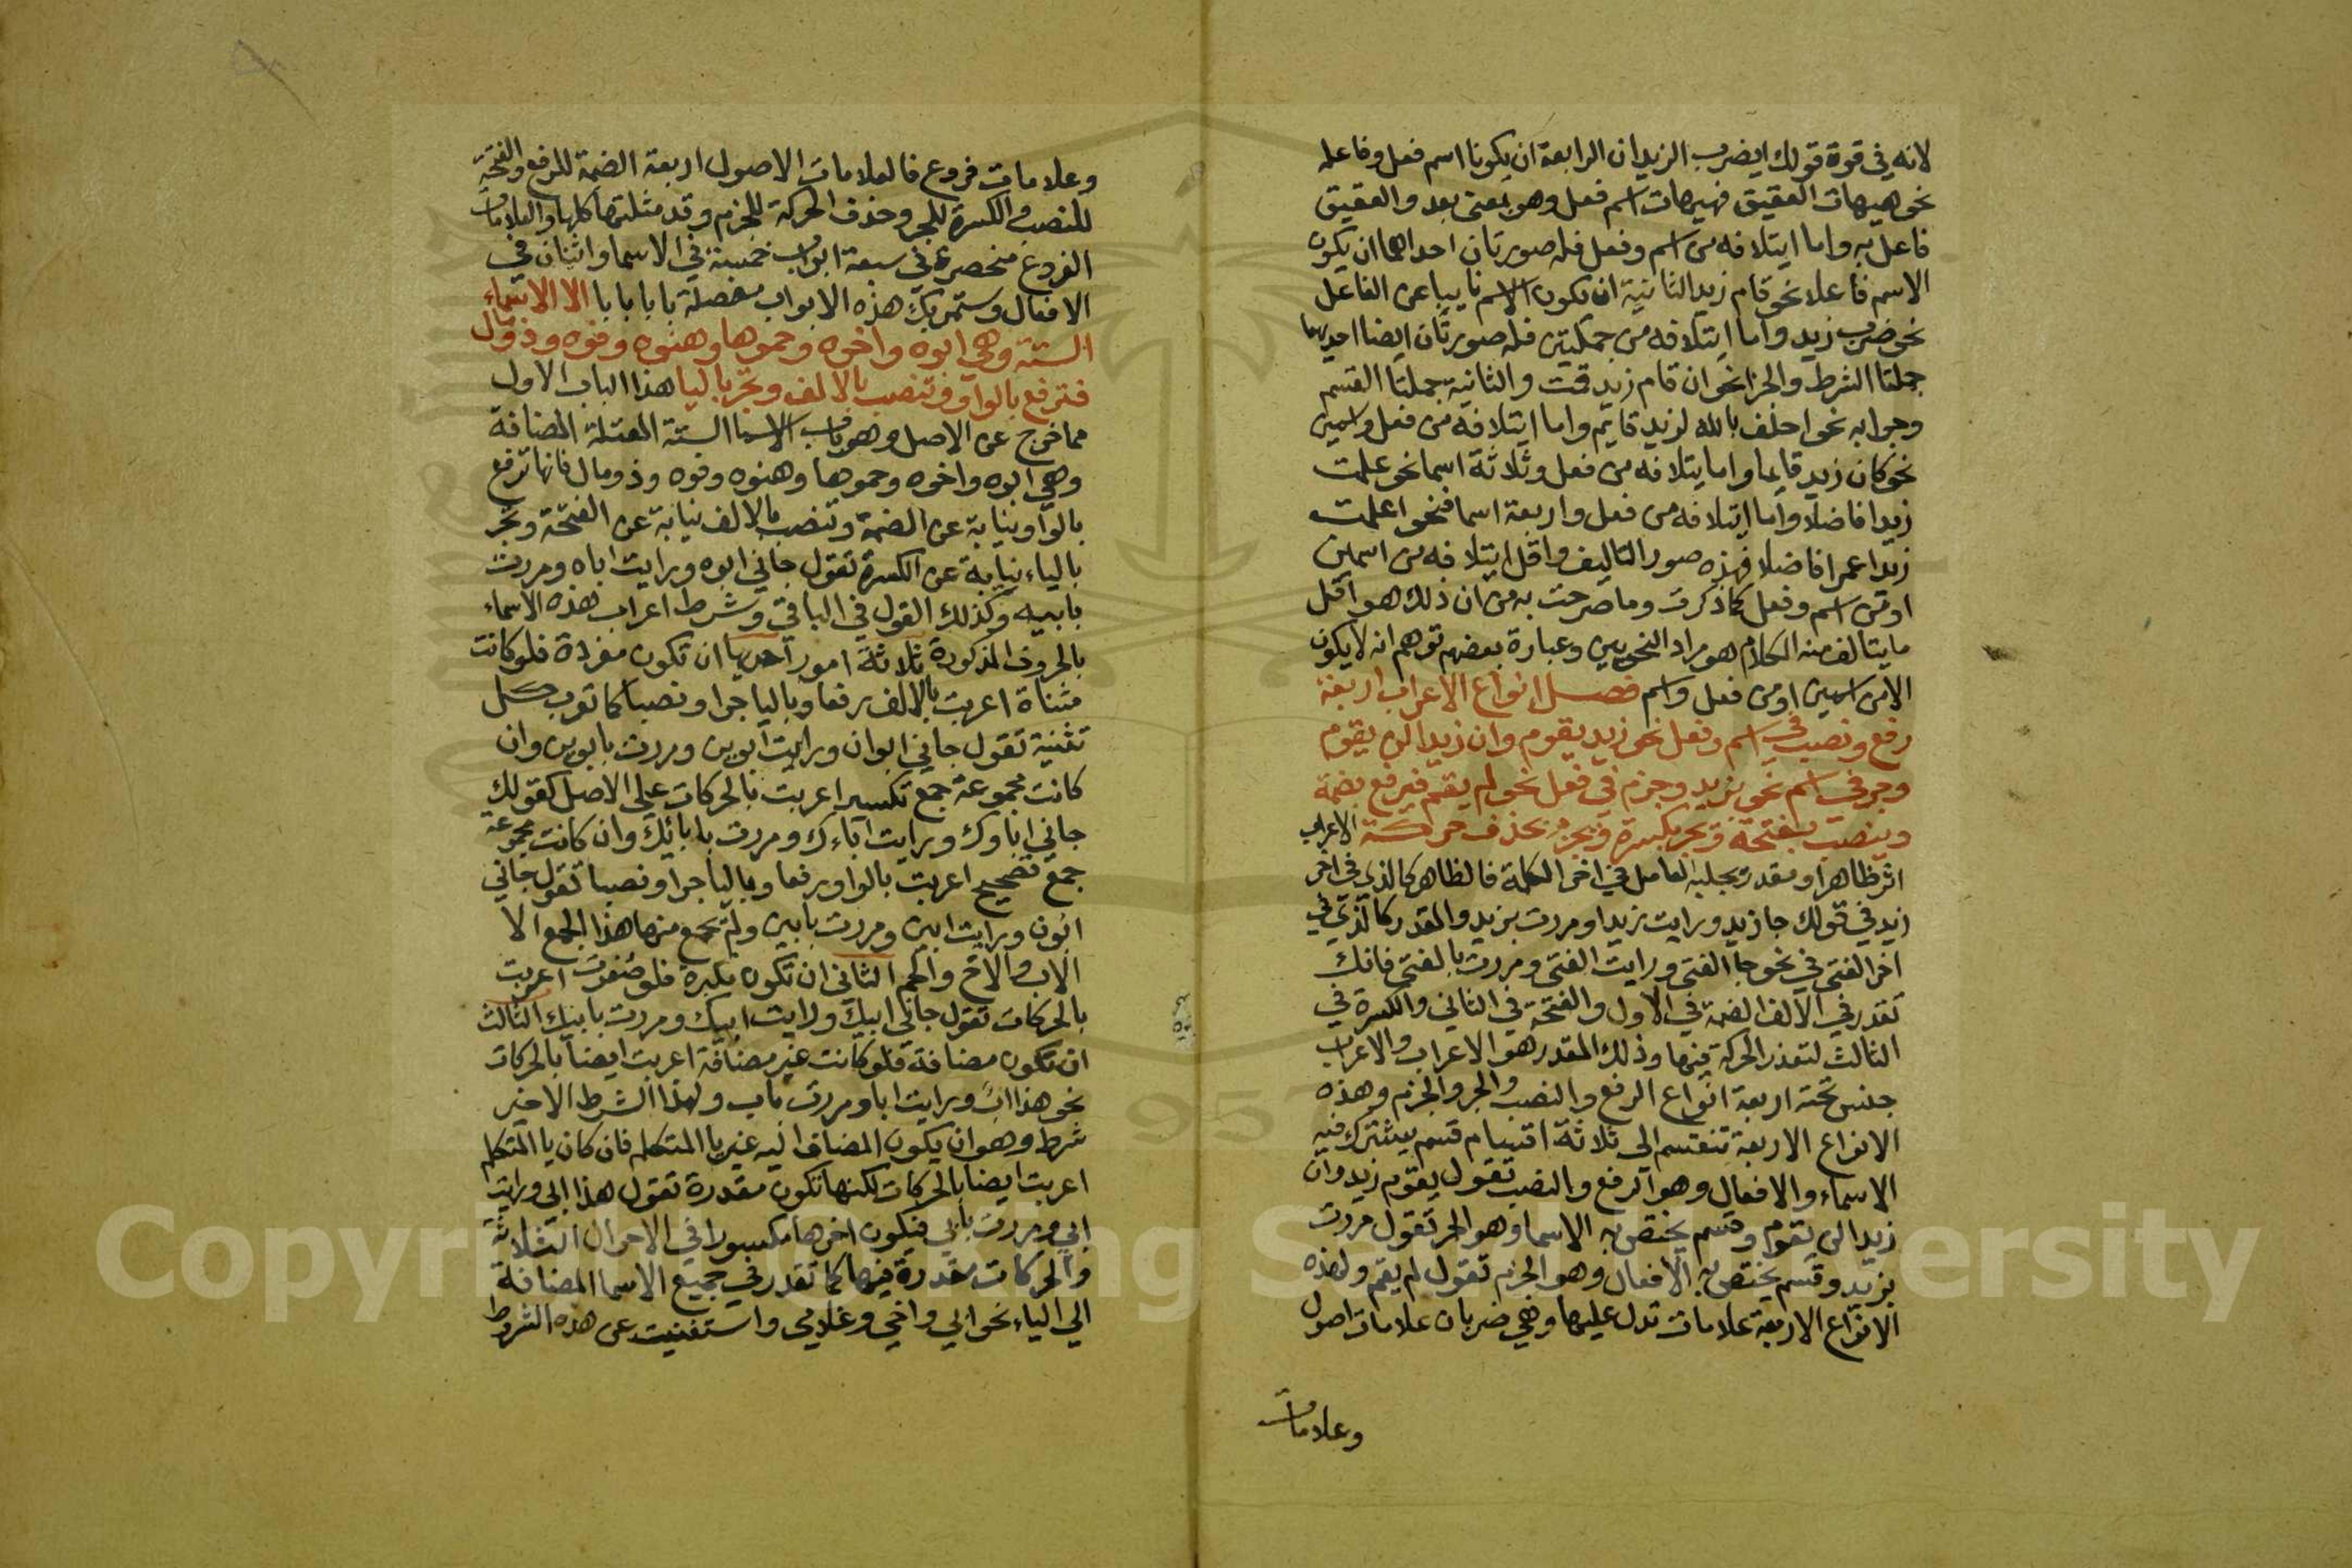 لانه في قوة قولك ايضرب الزيدان الرابعة ان يكونا اسم فعل وفاعله
نحو هيهات العقيق فهيهات اسم فعل وهو بمعنى بعد والعقيق
فاعل به واما ايتلافه من اسم وفعل فله صورتان احداهما ان يكون
الاسم فاعلا نحو قام زيد الثانية ان يكون الاسم نايبا عن الفاعل
نحو ضرب زيد واما ايتلافه من جملتين فله صورتان ايضا احديهما
جملتا الشرط والجزا نحو ان قام زيد قمت والثانية جملتا القسم
وجوابه نحو احلف بالله لزيد قايم واما ايتلافه من فعل واسمين
نحو كان زيد قايما واما يتلافه من فعل وثلاثة اسما نحو علمت
زيدا فاضلا واما ايتلافه من فعل واربعة اسما فنحو اعلمت
زيدا عمرا فاضلا فهذه صور التاليف واقل ايتلافه من اسمين
او من اسم وفعل كما ذكرت وما صرحت به من ان ذلك هو اقل
ما يتالف منه الكلام هو مراد النحويين وعبارة بعضهم توهم انه لا يكون
الا من اسمين او من فعل واسم فصل انواع الاعراب اربعة
رفع ونصب في اسم وفعل نحو زيد يقوم وان زيدا لن يقوم
وجر في اسم نحو بزيد وجزم في فعل نحو لم يقم فيرفع بضمة
وينصب بفتحة ويجر بكسرة ويجزم بحذف حركة الاعراب
اثر ظاهر او مقدر يجلبه العامل في اخر الكلمة فالظاهر كالذي في اخر
زيد في قولك جا زيد ورايت زيدا ومررت بزيد والمقدر كالذي في
اخر الفتى في نحو جا الفتى ورايت الفتى ومررت بالفتى فانك
تقدر في الالف الضمة في الاول والفتحة في الثاني والكسرة في
الثالث لتعذر الحركة فيها وذلك المقدر هو الاعراب والاعراب
جنس تحته اربعة انواع الرفع والنصب والجر والجزم وهذه
الانواع الاربعة تنقسم الى ثلاثة اقسام قسم يشترك فيه
الاسماء والافعال وهو الرفع والنصب تقول يقوم زيد وان
زيدا لن يقوم وقسم يختص به الاسما وهو الجر تقول مررت
بزيد وقسم يختص به الافعال وهو الجزم تقول لم يقم ولهذه
الانواع الاربعة علامات تدل عليها وهي ضربان علامات اصول
وعلامات
وعلامات فروع فالعلامات الاصول اربعة الضمة للرفع والفتحة
للنصب والكسرة للجر وحذف الحركة للجزم وقد مثلتها كلها والعلامات
الفروع منحصرة في سبعة ابواب خمسة في الاسما واثنان في
الافعال وستمر بك هذه الابواب مفصلة بابا بابا الا الاسماء
الستة وهي ابوه واخوه وحموها وهنوه وفوه وذو مال
فترفع بالواو وتنصب بالالف وتجر باليا هذا الباب الاول
مما خرج عن الاصل وهو باب الاسما الستة المعتلة المضافة
وهي ابوه واخوه وحموها وهنوه وفوه وذو مال فانها ترفع
بالواو نيابة عن الضمة وتنصب بالالف نيابة عن الفتحة وتجر
بالياء نيابة عن الكسرة تقول جاني ابوه ورايت اباه ومررت
بابيه وكذلك القول في الباقي وشرط اعراب هذه الاسماء
بالحروف المذكورة ثلاثة امور احديها ان تكون مفردة فلو كانت
مثناة اعربت بالالف رفعا وباليا جرا ونصبا كما تعرب كل
تثنية تقول جاني ابوان ورايت ابوين ومررت بابوين وان
كانت مجموعة جمع تكسير اعربت بالحركات على الاصل كقولك
جاني اباوك ورايت آباءك ومررت بابائك وان كانت مجموعة
جمع تصحيح اعربت بالواو رفعا وباليا جرا ونصبا تقول جاني
ابون ورايت ابين ومررت بابين ولم يجمع منها هذا الجمع الا
الاب والاخ والحم الثاني ان تكون مكبرة فلو صغرت اعربت
بالحركات تقول جاني ابيك ورايت ابيك ومررت بابيك الثالث
ان تكون مضافة فلو كانت غير مضافة اعربت ايضا بالحركات
نحو هذا اب ورايت ابا ومررت باب ولهذا الشرط الاخير
شرط وهو ان يكون المضاف اليه غير يا المتكلم فان كان يا المتكلم
اعربت ايضا بالحركات لكنها تكون مقدرة تقول هذا ابي ورايت
ابي ومررت بابي فيكون اخرها مكسورا في الاحوال الثلاثة
والحركات مقدرة فيها كما تقدر في جميع الاسما المضافة
الي الياء نحو ابي واخي وغلامي واستغنيت عن هذه الشروط
Copyright © King Saud University